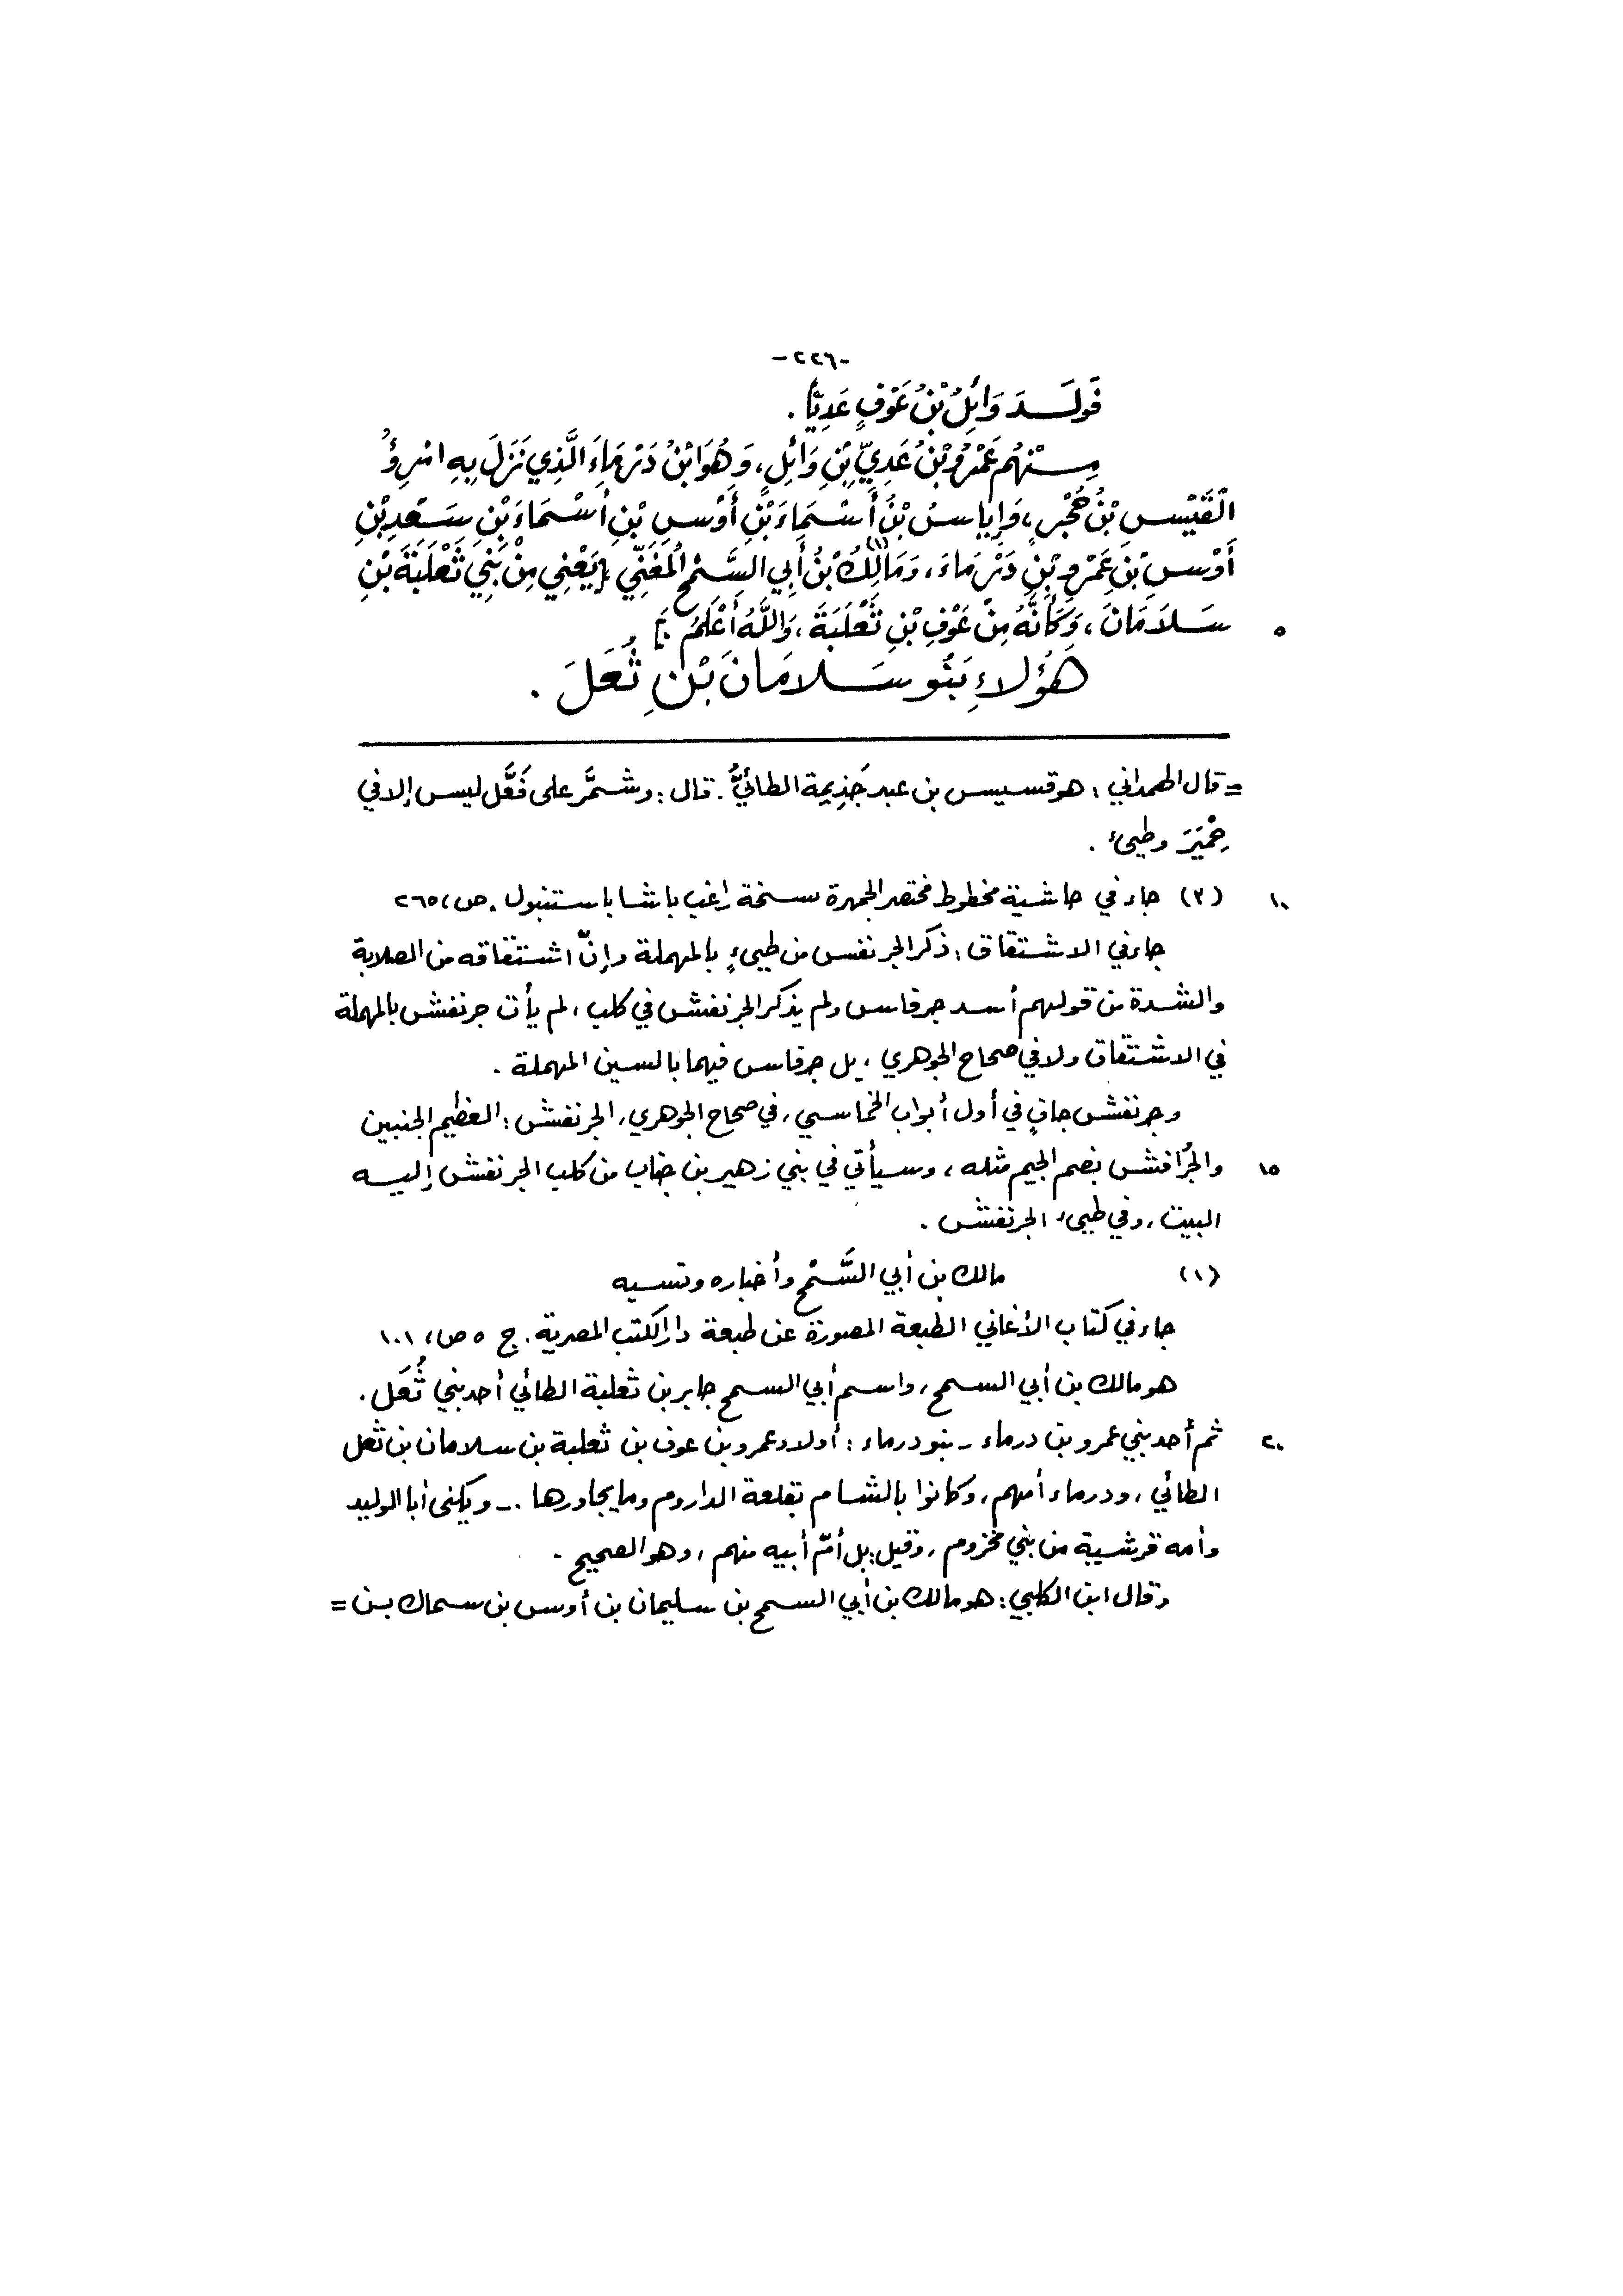 -٢٢٦-
فَوَلَـدَ وَائِلُ بْنُ عَوْفٍ عَدِيّاً.
مِـنْهُم عَمْرُو بْنُ عَدِيِّ بْنِ وَائِلٍ، وَهُوَ ابْنُ دَرْمَاءَ الَّذِي نَزَلَ بِهِ امْرِؤُ
الْقَيْسِ بْنُ حُجْرٍ، وَإِيَاسُ بْنُ أَسْمَاءَ بْنِ أَوْسِ بْنِ أَسْمَاءَ بْنِ سَعْدِ بْنِ
أَوْسِ بْنِ عَمْرِو بْنِ دَرْمَاءَ، وَمَالِكُ(١) بْنُ أَبِي السَّمْحِ الْمُغَنِّي [يَعْنِي مِنْ بَنِي ثَعْلَبَةَ بْنِ
سَـلَامَانَ، وَكَأَنَّهُ مِنْ عَوْفِ بْنِ ثَعْلَبَةَ، وَاللَّهُ أَعْلَمُ.] ٥
هَؤُلاءِ بَنُو سَـلامَانَ بْنِ ثُعَلَ.
= قال الهمداني: هو قسيس بن عبد جَذِيمة الطائيُّ. قال: وشمَّر على فَعَّل ليس إلا في
حِمْيَرَ وطيئ.
(٣) جاء في حاشية مخطوط مختصر الجمهرة سـخة راغب باشا باستنبول. ص، ٢٦٥ ١٠
جاء في الاشتقاق: ذكر الجرنفس من طيىءٍ بالمهملة وإنّ اشتقاقه من الصلابة
والشدة من قولهم أسد جرفاس ولم يذكر الجرنفش في كلب، لم يأت جرنفش بالمهملة
في الاشتقاق ولا في صحاح الجوهري، بل جرفاس فيهما بالسين المهملة.
وجرنفش جافٍ في أول أبواب الخماسي، في صحاح الجوهري، الجرنفش: العظيم الجنبين
والجُرافش بضم الجيم مثله، وسيأتي في بني زهير بن جناب من كلب الجرنفش إليـه ١٥
البيت، وفي طيىء الجرنفش.
(١) مالك بن أبي السَّمْح وأخباره ونسبه
جاء في كتاب الأغاني الطبعة المصورة عن طبعة دار الكتب المصرية. ج ٥ ص، ١٠١
هو مالك بن أبي السمح، واسم أبي السمح جابر بن ثعلبة الطائي أحد بني ثُعَل.
ثم أحد بني عمرو بن درماء - بنو درماء: أولاد عمرو بن عوف بن ثعلبة بن سلامان بن ثعل ٢٠
الطائي، ودرماء أمهم، وكانوا بالشام بقلعة الداروم وما يجاورها .- ويكنى أبا الوليد
وأمه قرشية من بني مخزوم، وقيل: بل أمّ أبيه منهم، وهو الصحيح.
وقال ابن الكلبي: هو مالك بن أبي السمح بن سليمان بن أوس بن سماك بـن =